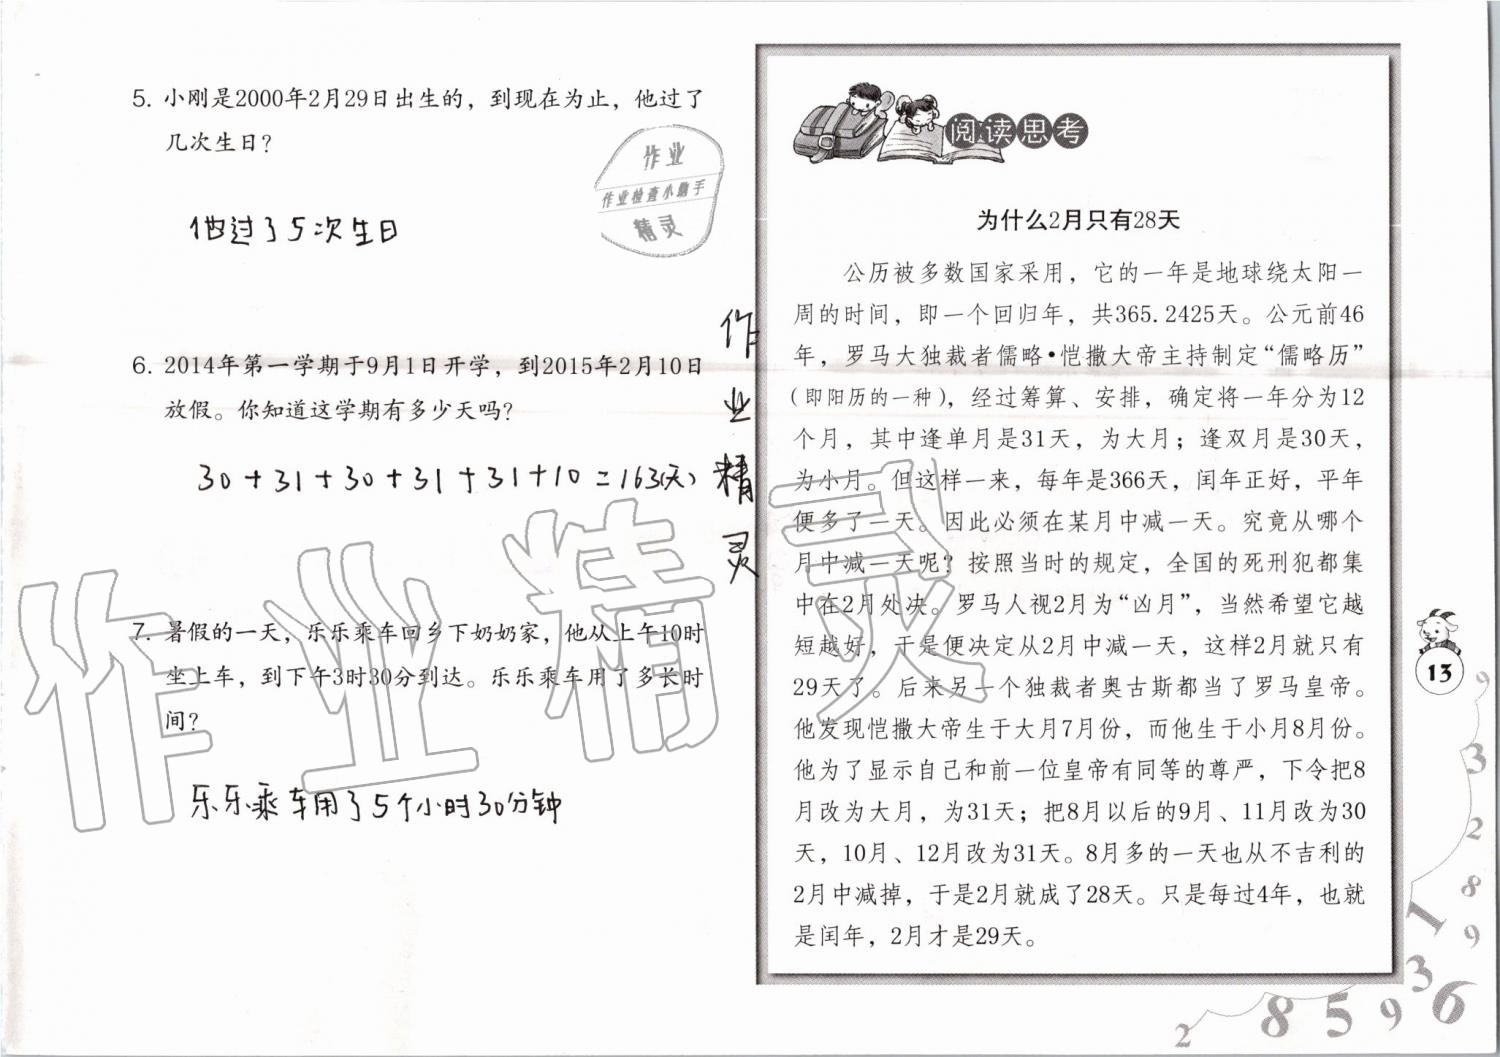 5. 小刚是2000年2月29日出生的，到现在为止，他过了
几次生日？
他过了5次生日
6. 2014年第一学期于9月1日开学，到2015年2月10日
放假。你知道这学期有多少天吗？
30+31+30+31+31+10=163(天)
7. 暑假的一天，乐乐乘车回乡下奶奶家，他从上午10时
坐上车，到下午3时30分到达。乐乐乘车用了多长时
间？
乐乐乘车用了5个小时30分钟
作业
作业检查小助手
精灵
作
业
精
灵
作业精灵
阅读思考
为什么2月只有28天
公历被多数国家采用，它的一年是地球绕太阳一
周的时间，即一个回归年，共365.2425天。公元前46
年，罗马大独裁者儒略•恺撒大帝主持制定“儒略历”
（即阳历的一种），经过筹算、安排，确定将一年分为12
个月，其中逢单月是31天，为大月；逢双月是30天，
为小月。但这样一来，每年是366天，闰年正好，平年
便多了一天。因此必须在某月中减一天。究竟从哪个
月中减一天呢？按照当时的规定，全国的死刑犯都集
中在2月处决。罗马人视2月为“凶月”，当然希望它越
短越好，于是便决定从2月中减一天，这样2月就只有
29天了。后来另一个独裁者奥古斯都当了罗马皇帝。
他发现恺撒大帝生于大月7月份，而他生于小月8月份。
他为了显示自己和前一位皇帝有同等的尊严，下令把8
月改为大月，为31天；把8月以后的9月、11月改为30
天，10月、12月改为31天。8月多的一天也从不吉利的
2月中减掉，于是2月就成了28天。只是每过4年，也就
是闰年，2月才是29天。
13
9
3
2
8
9
1
3
6
9
5
8
2